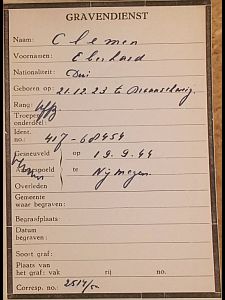 GRAVENDIENST
Naam: Clemen
Voornamen: Eberhard
Nationaliteit: Dui
Geboren op: 21.12.23 te Braunschweig.
Rang:
Troepen-
onderdeel:
Ident.
no.: 417 - 68454
Gesneuveld op 19.9.44
Aangespoeld te Nijmegen.
Overleden
Gemeente
waar begraven:
Begraafplaats:
Datum
begraven:
Soort graf:
Plaats van
het graf: vak rij no.
Corresp. no.: 2517/